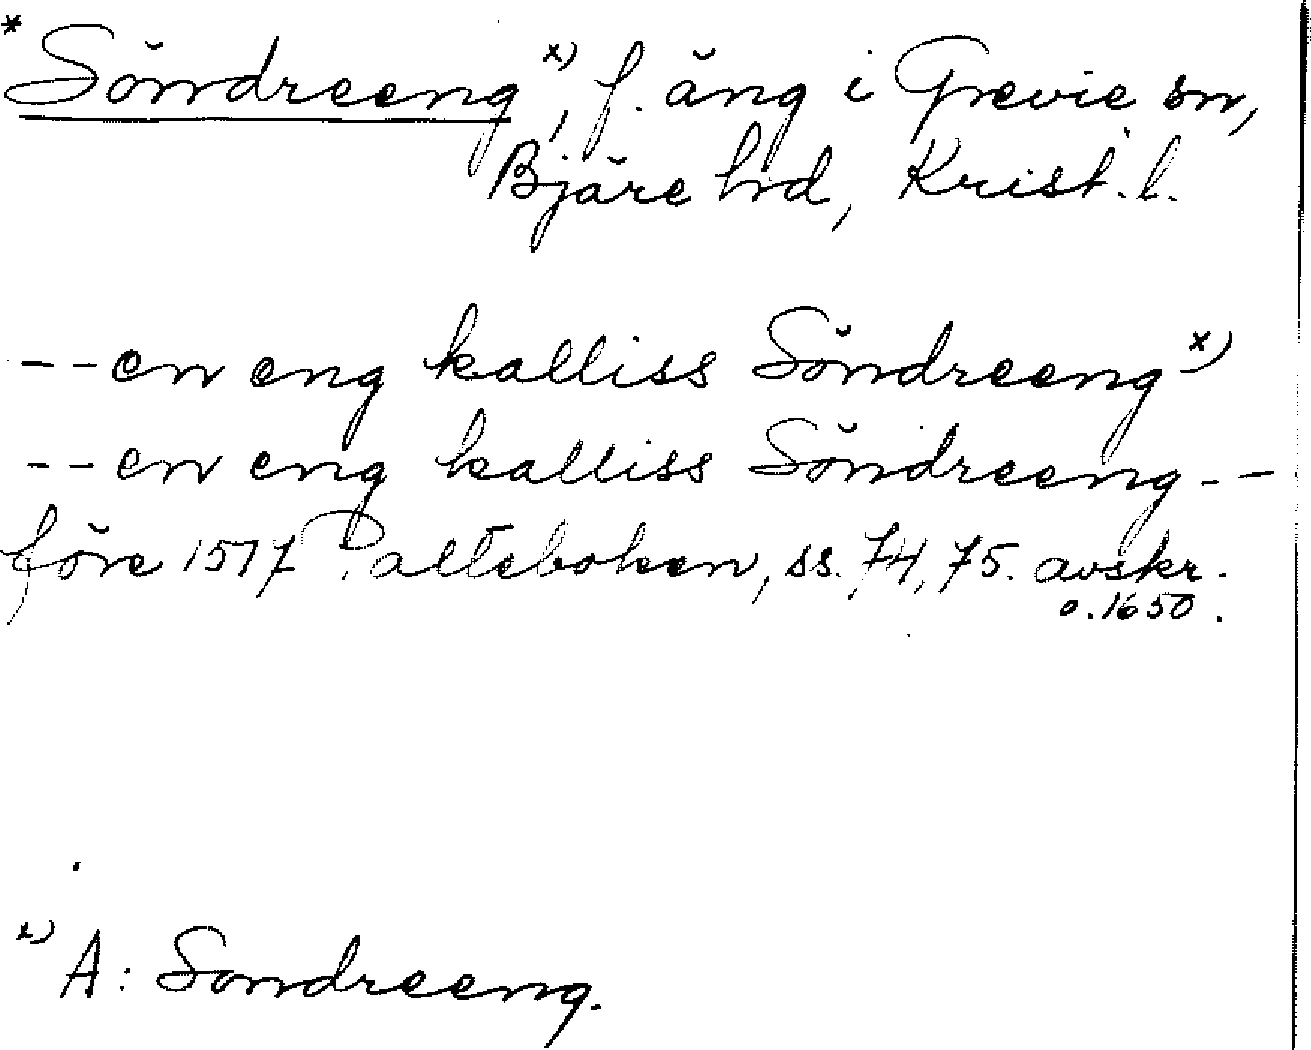 *Söndreeng x), f. äng i Grevie sn,
Bjäre hd, Krist. l.
-- en eng kalliss Söndreeng x)
-- en eng kalliss Söndreeng --
före 1517 Palteboken, ss. 74, 75. avskr.
o. 1650.
x) A: Sondreeng.